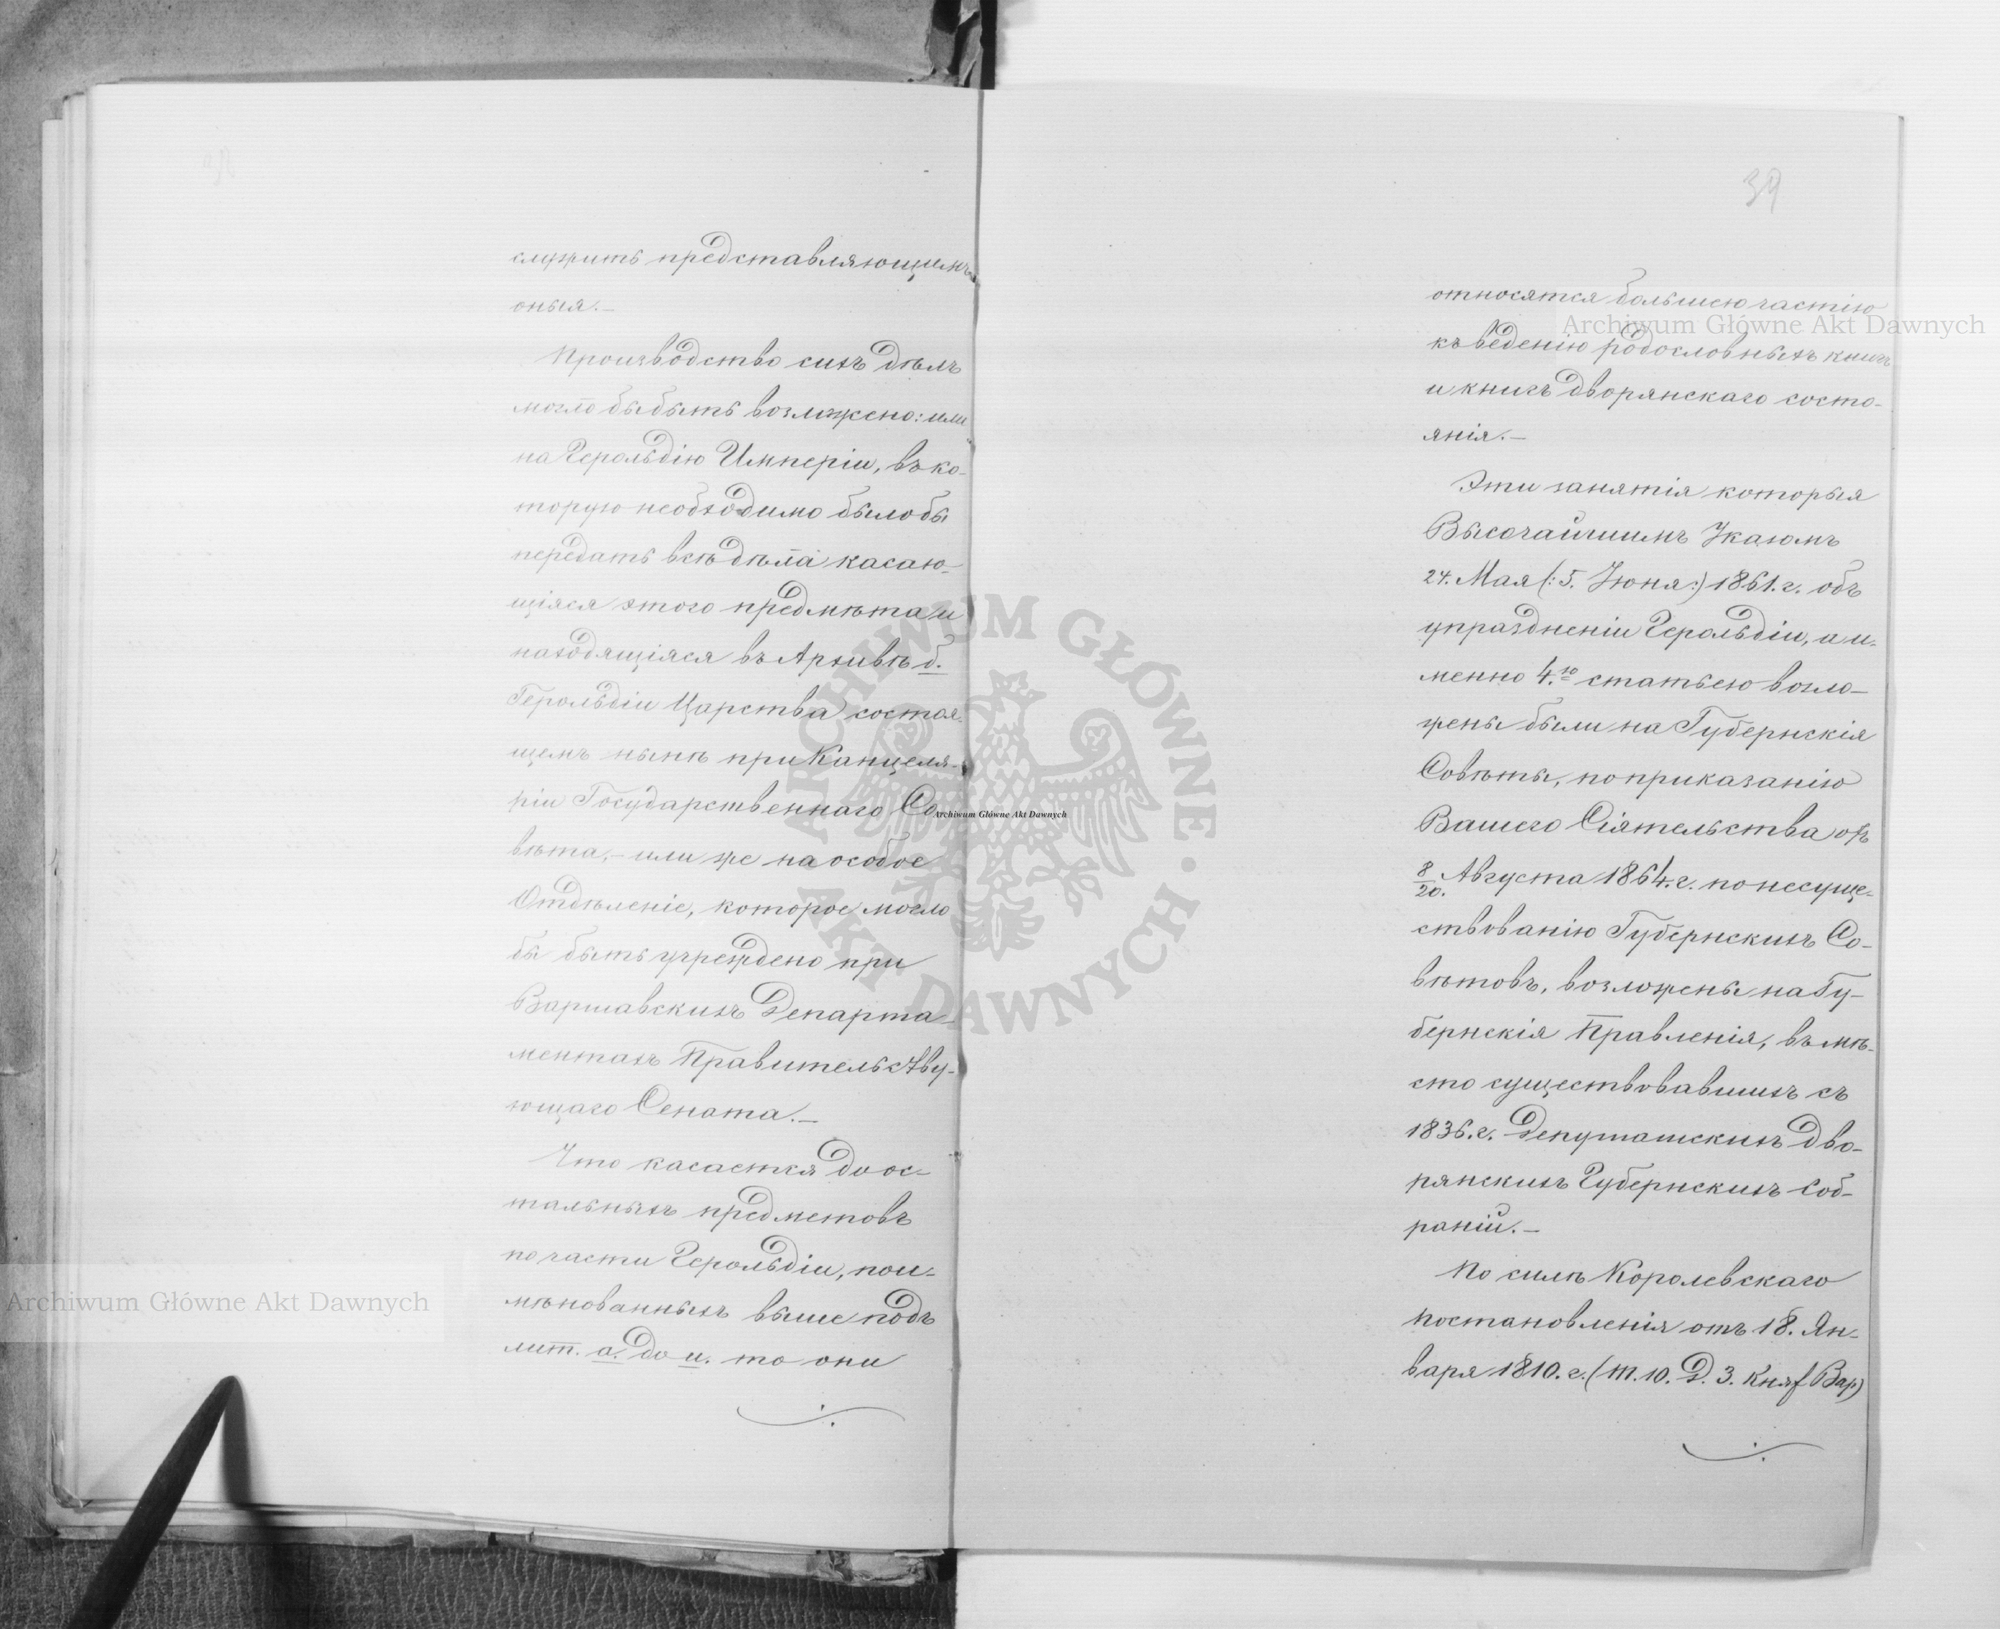 служить представляющимъ
оныя.—
Производство сихъ дѣлъ
могло бы быть возложено: или
на Герольдію Имперіи, въ ко-
торую необходимо было бы
передать всѣ дѣла касаю-
щіяся этого предмѣта и
находящіяся въ Архивѣ б.
Герольдіи Царства состоя-
щемъ нынѣ при Канцеля-
ріи Государственнаго Со
вѣта,— или же на особое
Отдѣленіе, которое могло
бы быть учреждено при
Варшавскихъ Департа-
ментахъ Правительству-
ющаго Сената.—
Что касается до ос-
тальныхъ предметовъ
по части Герольдіи, пои-
мѣнованныхъ выше подъ
лит. а. до и. то они
39
относятся большею частію
къ веденію родословныхъ книгъ
и книгъ дворянскаго состо-
янія.—
Эти занятія которыя
Высочайшимъ Указомъ
24. Мая (: 5. Іюня :) 1861. г. объ
упраздненіи Герольдіи, а и-
менно 4.ю статьею возло-
жены были на Губернскія
Совѣты, по приказанію
Вашего Сіятельства отъ
8/20. Августа 1864. г. по несуще-
ствованію Губернскихъ Со-
вѣтовъ, возложены на Гу-
бернскія Правленія, въ мѣ-
сто существовавшихъ съ
1836. г. Депуташскихъ Дво-
рянскихъ Губернскихъ Соб-
раній.—
По силѣ Королевскаго
постановленія отъ 18. Ян-
варя 1810. г. (т. 10. Д. 3. Княж Вар)
Archiwum Główne Akt Dawnych
Archiwum Główne Akt Dawnych
Archiwum Główne Akt Dawnych
ARCHIWUM GŁÓWNE · AKT DAWNYCH ·